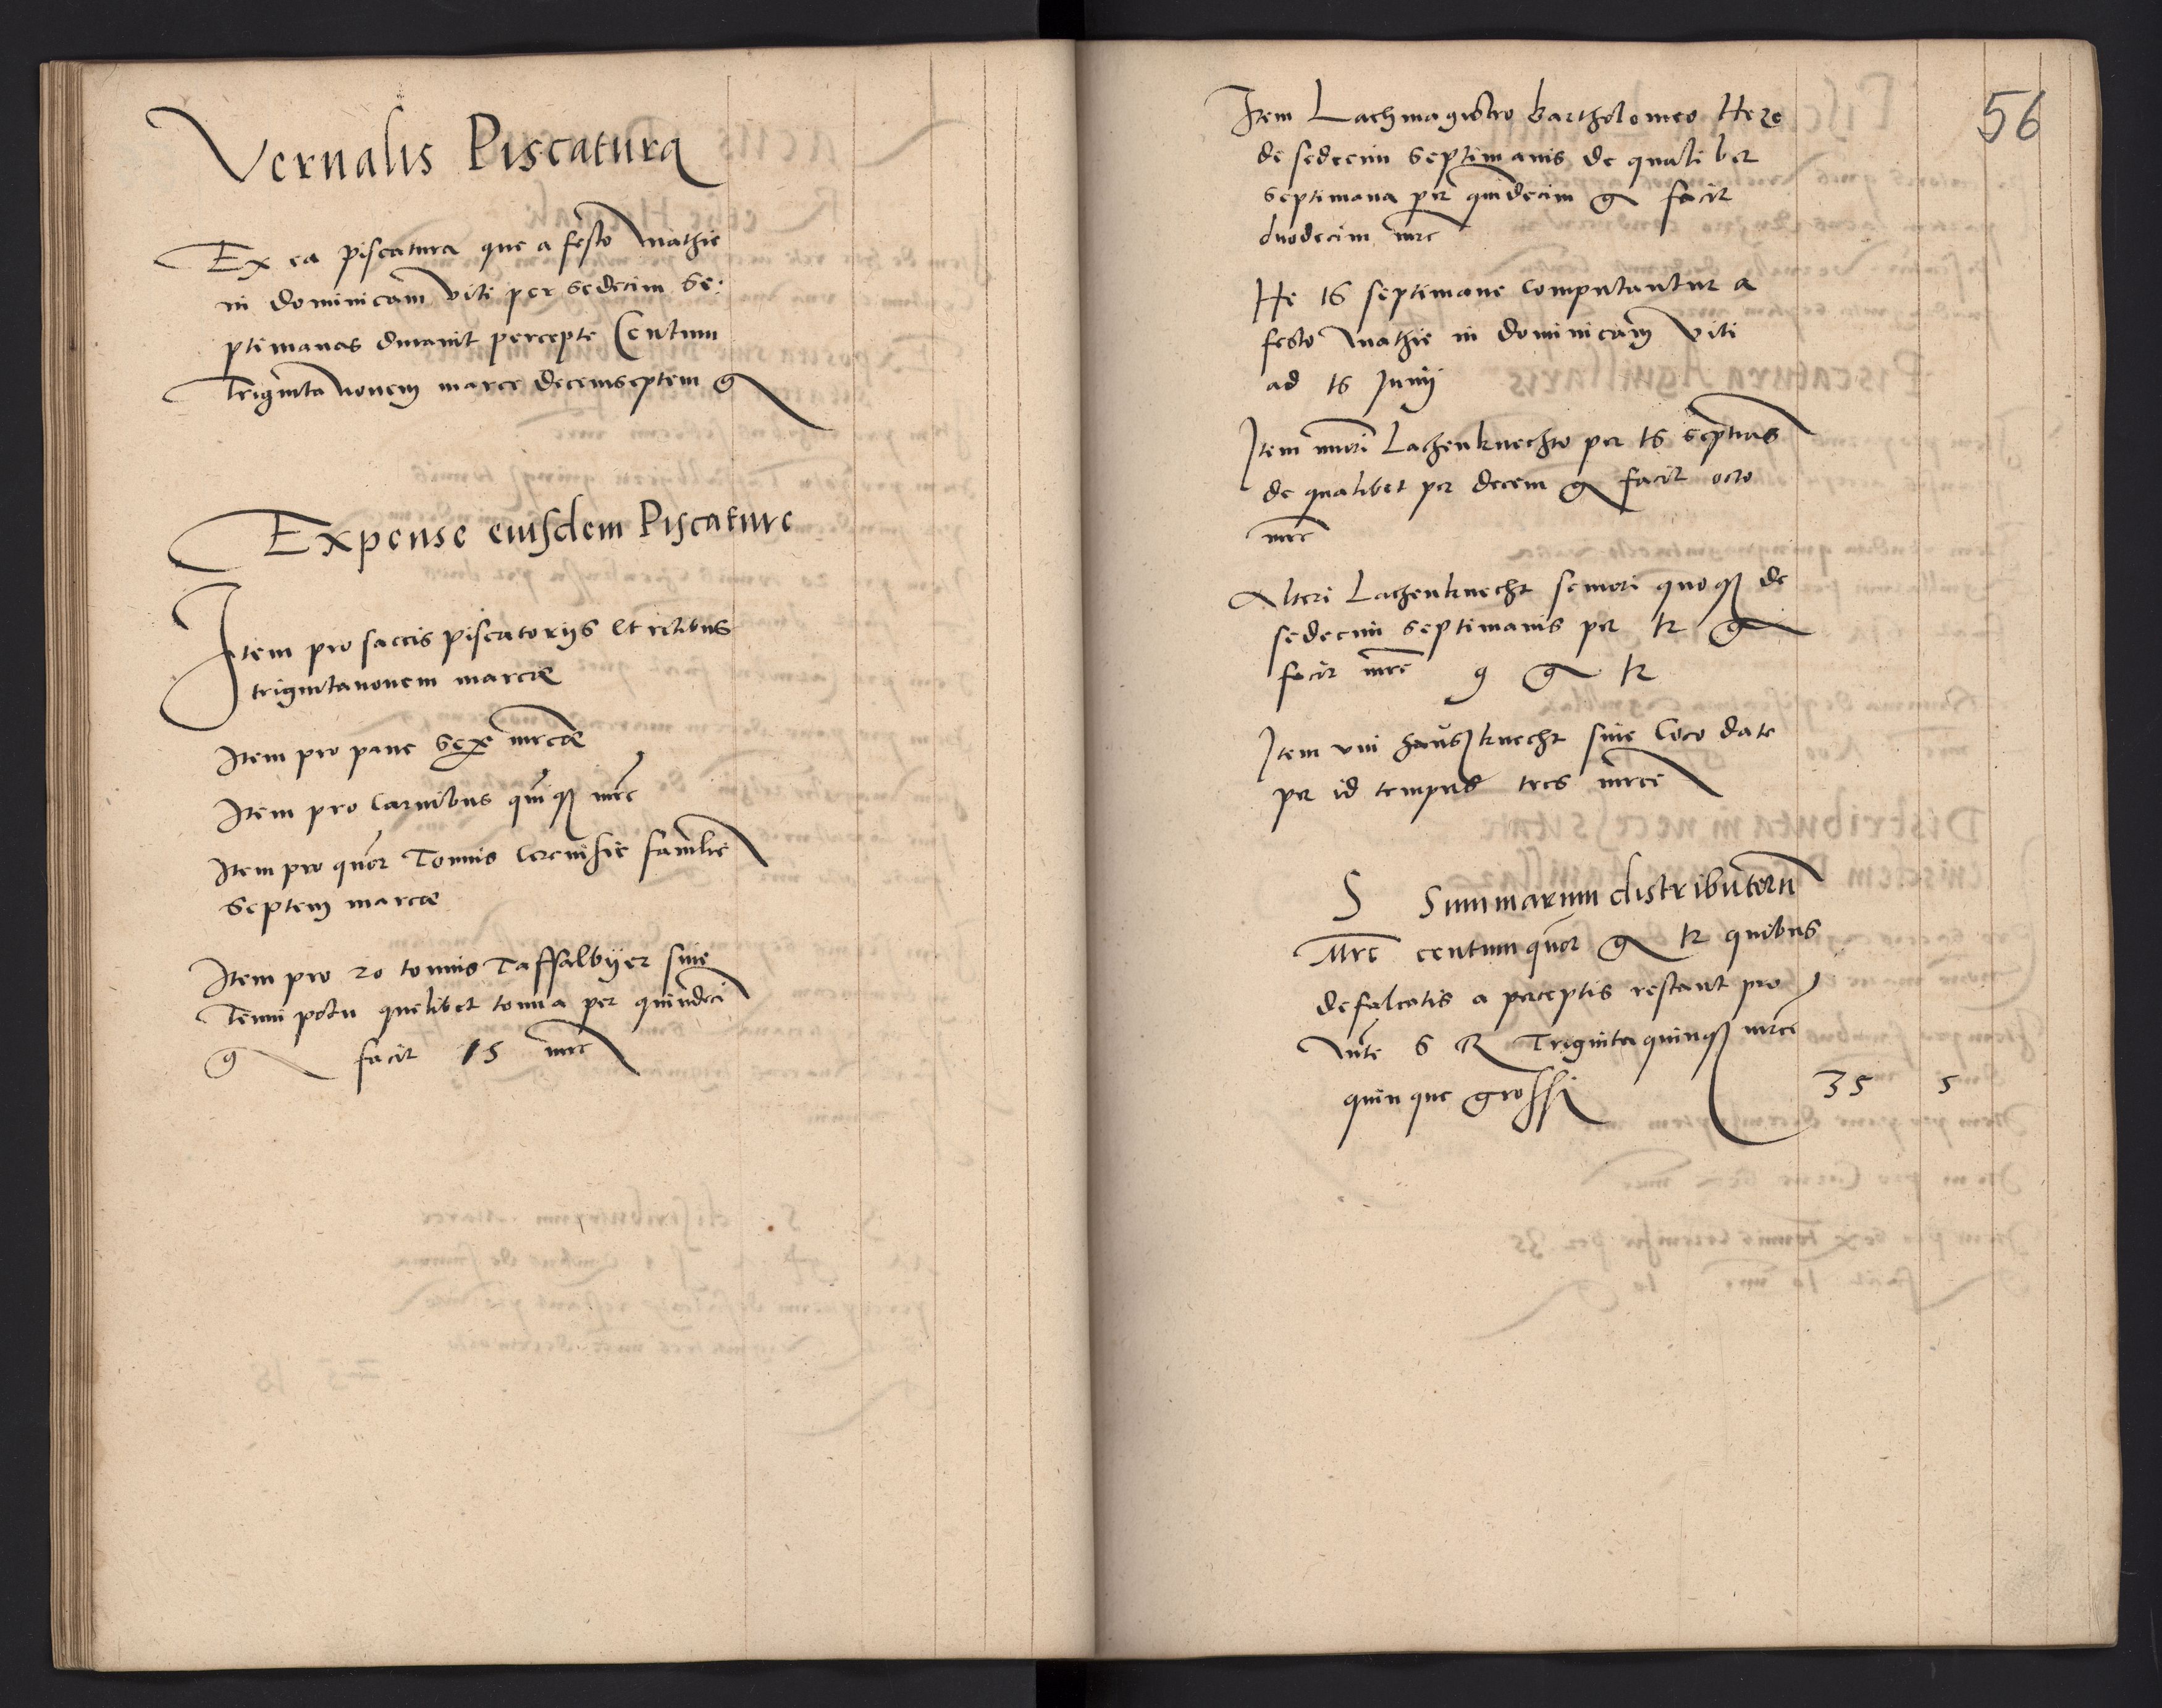 Vernalis Piscatura
Ex ea piscatura que a festo Mathie
in dominicam Viti per sedecim se:
ptimanas duravit percepte Centum
Triginta novem marce decemseptem g
Expense eiusdem Piscature
Item pro saccis piscatorijs et retibus
trigintanovem marce
Item pro pane sex mrce
Item pro Carnibus quiq3 mrc
Item pro quor Tonnis Cerevisie familie
Septem marce
Item pro 20 tonnis Taffalbijer sive
Tenui potu quelibet tonna per quindeci
g facit 15 mrc
56
Item Lachmagistro Bartholomeo Heze
de sedecim septimanis de qualibet
septimana per quindecim g facit
duodecim mrc
He 16 septimane computantur a
festo Mathie in dominicam Viti
ad 16 Junij
Item Lachenknechto per 16 septias
de qualibet per decem g facit octo
mrc
Alteri Lachenknecht quoq3 de
sedecim septimanis per 12 g
facit mrc 9 g 12
Item uni hausknecht sive Coco date
per id tempus tres mrce
S Summarum distributoru
Mrc centum quor g 12 quibus
defalcatis a perceptis restant pro
Mte S R Trigintaquinq3 mrce
quinque grossi 35 5